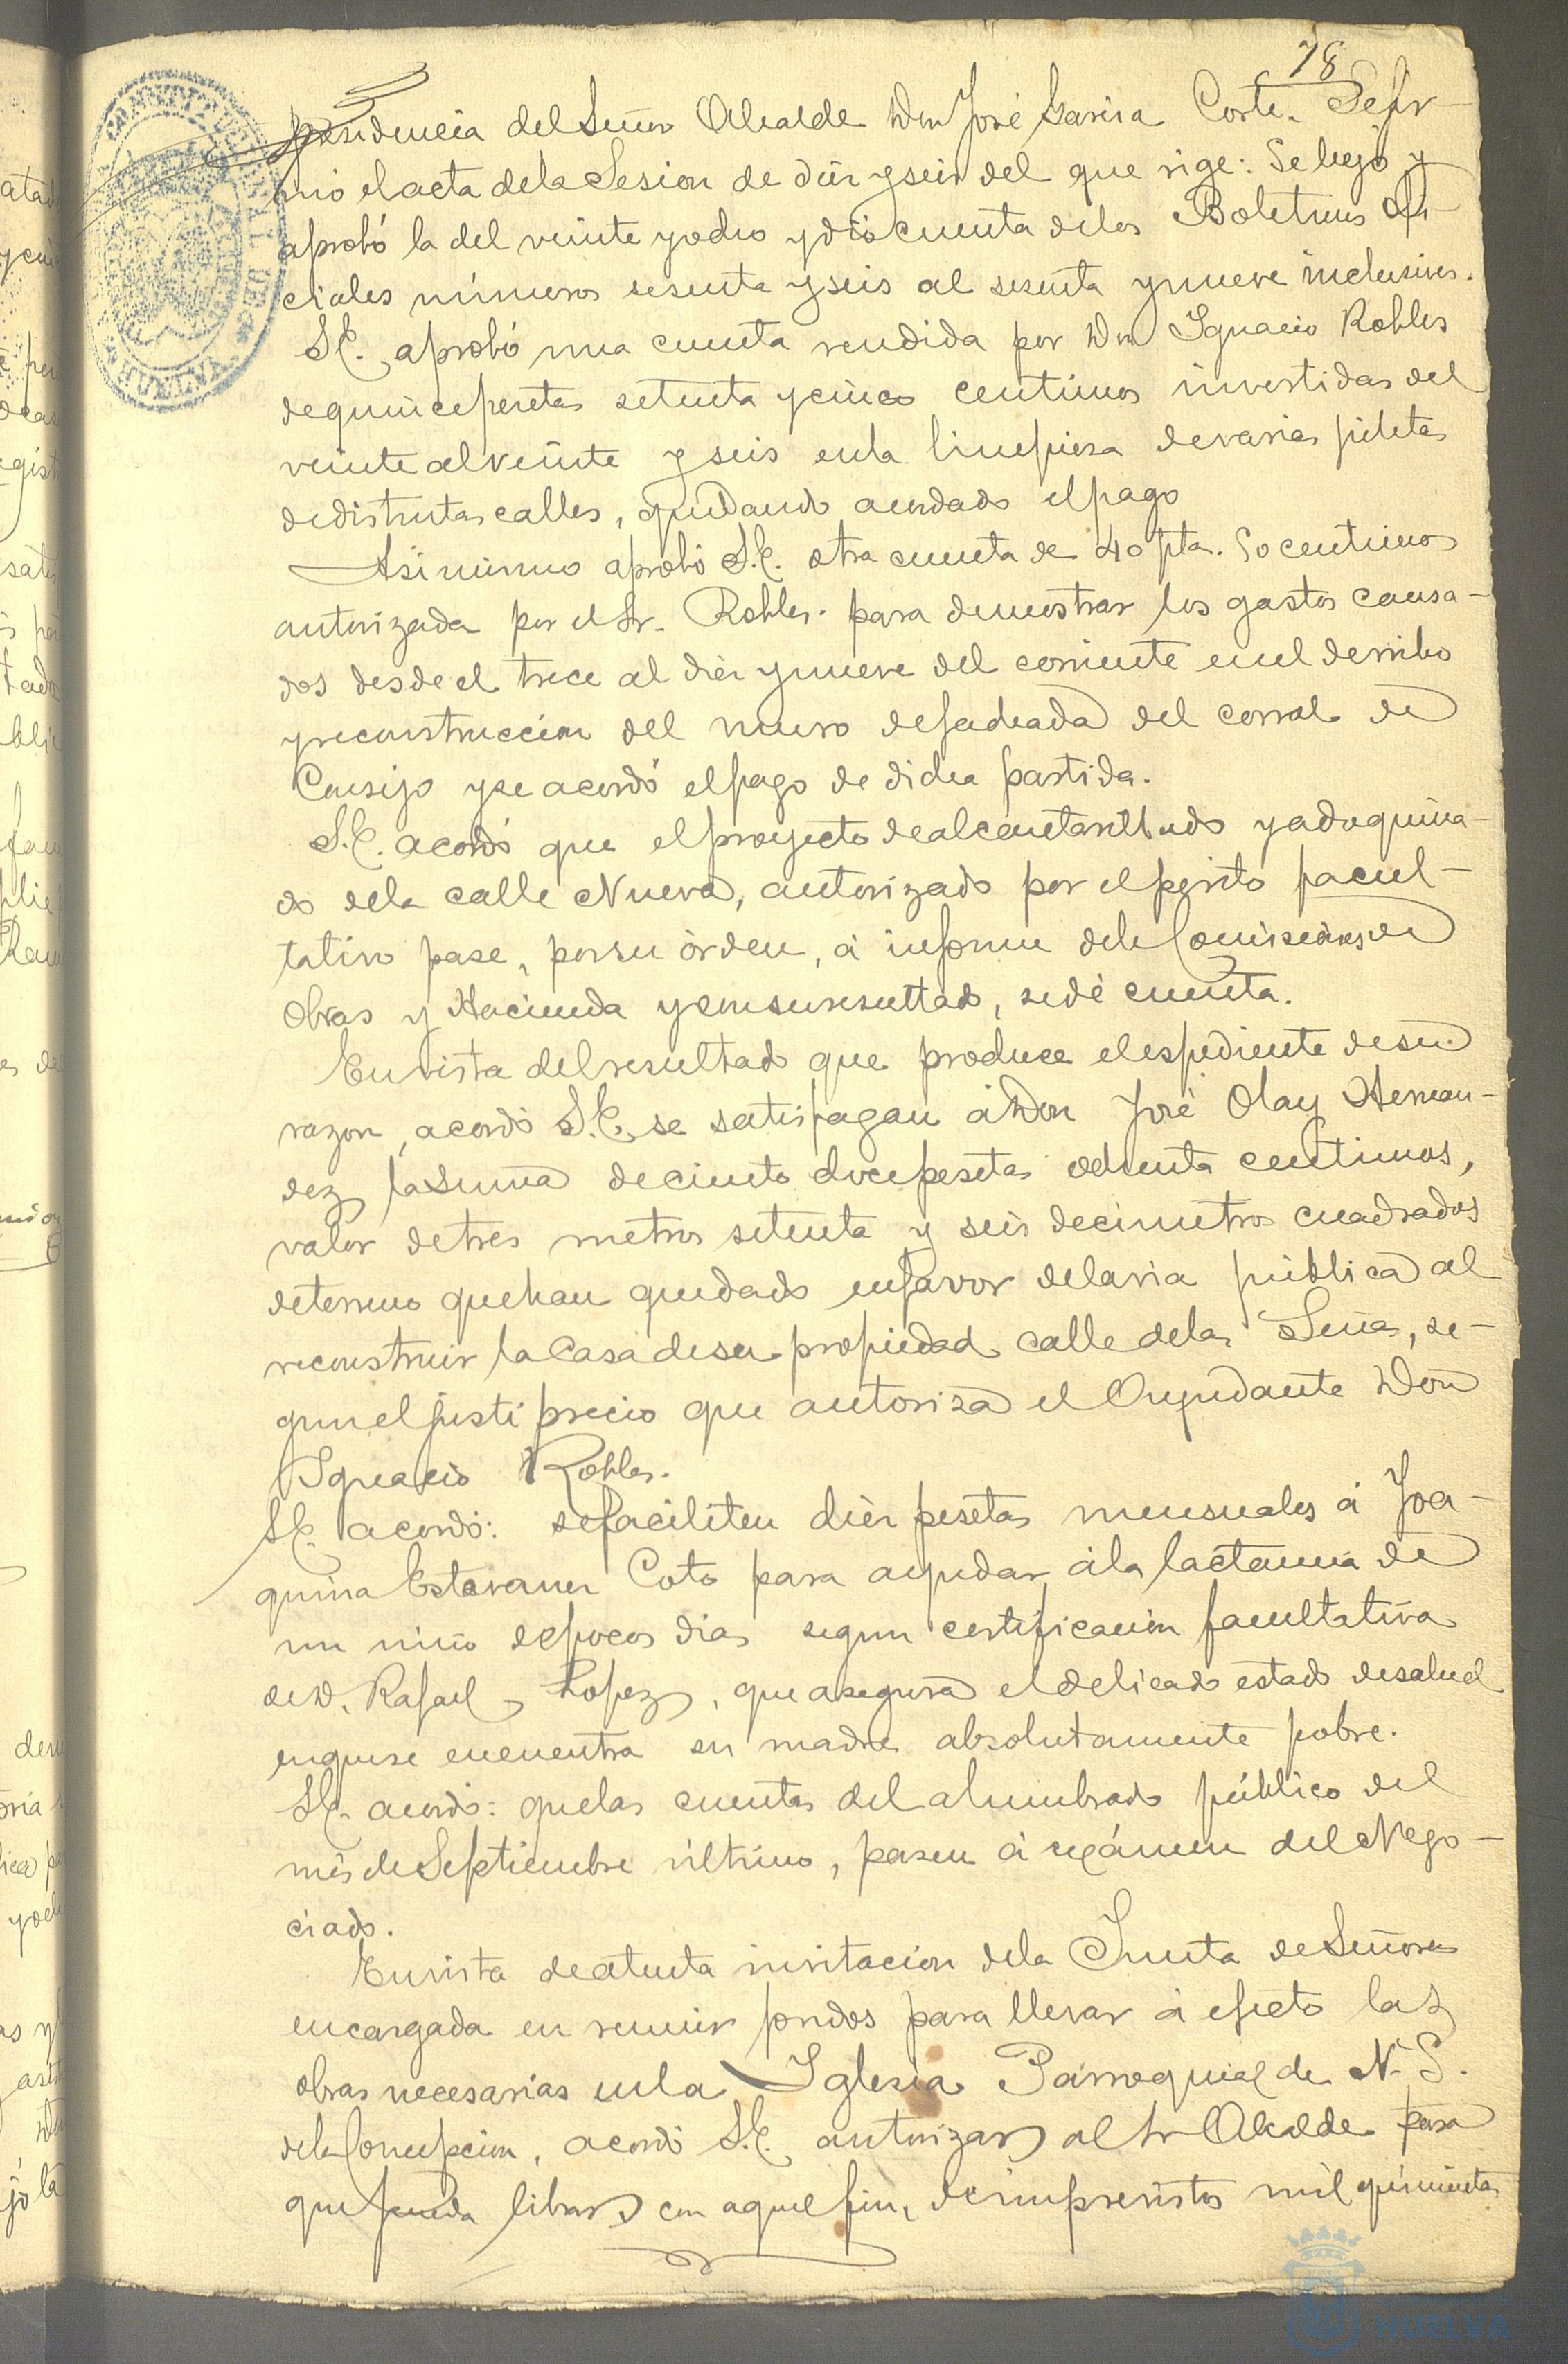 78
presidencia del Señor Alcalde Don José Garcia Corte. Sefir
mó el acta dela Sesion de diez y seis del que rige: Se leyó y
aprobó la del veinte y ocho y dió cuenta delos Boletines ofi
ciales números sesenta y seis al sesenta y nueve inclusives.
S.C. aprobó una cuenta rendida por Don Ignacio Robles
de quince pesetas setenta y cinco centimos invertidas del
veinte al veinte y seis enla limpieza de varias piletas
de distintas calles, quedando acordado el pago
Asimismo aprobó S.C. otra cuenta de 40 pta. 50 centimos
autorizada por el Sr. Robles. para demostrar los gastos causa-
dos desde el trece al diez y nueve del corriente en el derribo
y reconstruccion del muro de fachada del corral de
Consejo y se acordó el pago de dicha partida.
S.C. acordó que el proyecto de alcantarillado y adoquina-
do dela calle Nueva, autorizado por el perito facul-
tativo pase, por su órden, á informe dela Comisiones de
Obras y Hacienda y con su resultado, se dé cuenta.
En vista del resultado que produce el espediente de su
razon, acordó S.C. se satisfagan á Don José Olay Hernan-
dez la suma de ciento doce pesetas ochenta centimos,
valor de tres metros setenta y seis decimetros cuadrados
de terreno que han quedado en favor de la via pública al
reconstruir la Casa de su propiedad calle delas Señas, se-
gun el justi precio que autoriza el Ayudante Don
Ignacio Robles.
S.C. acordó: se faciliten diez pesetas mensuales á Joa-
quina Estavanez Coto para ayudar á la lactancia de
un niño de pocos dias segun certificacion facultativa
de D. Rafael Lopez, que asegura el delicado estado de salud
en que se encuentra su madre absolutamente pobre.
S.C. acordó: que las cuentas del alumbrado público del
més de Septiembre último, pasen á exámen del Nego-
ciado.
En vista de atenta invitacion dela Junta de Señoras
encargada en reunir fondos para llevar á efecto las
obras necesarias en la Iglesia Parroquial de N. S.
dela Concepcion, acordó S.C. autorizar al Sr Alcalde para
que pueda librar con aquel fin, de imprevistos mil quinientas
HUELVA